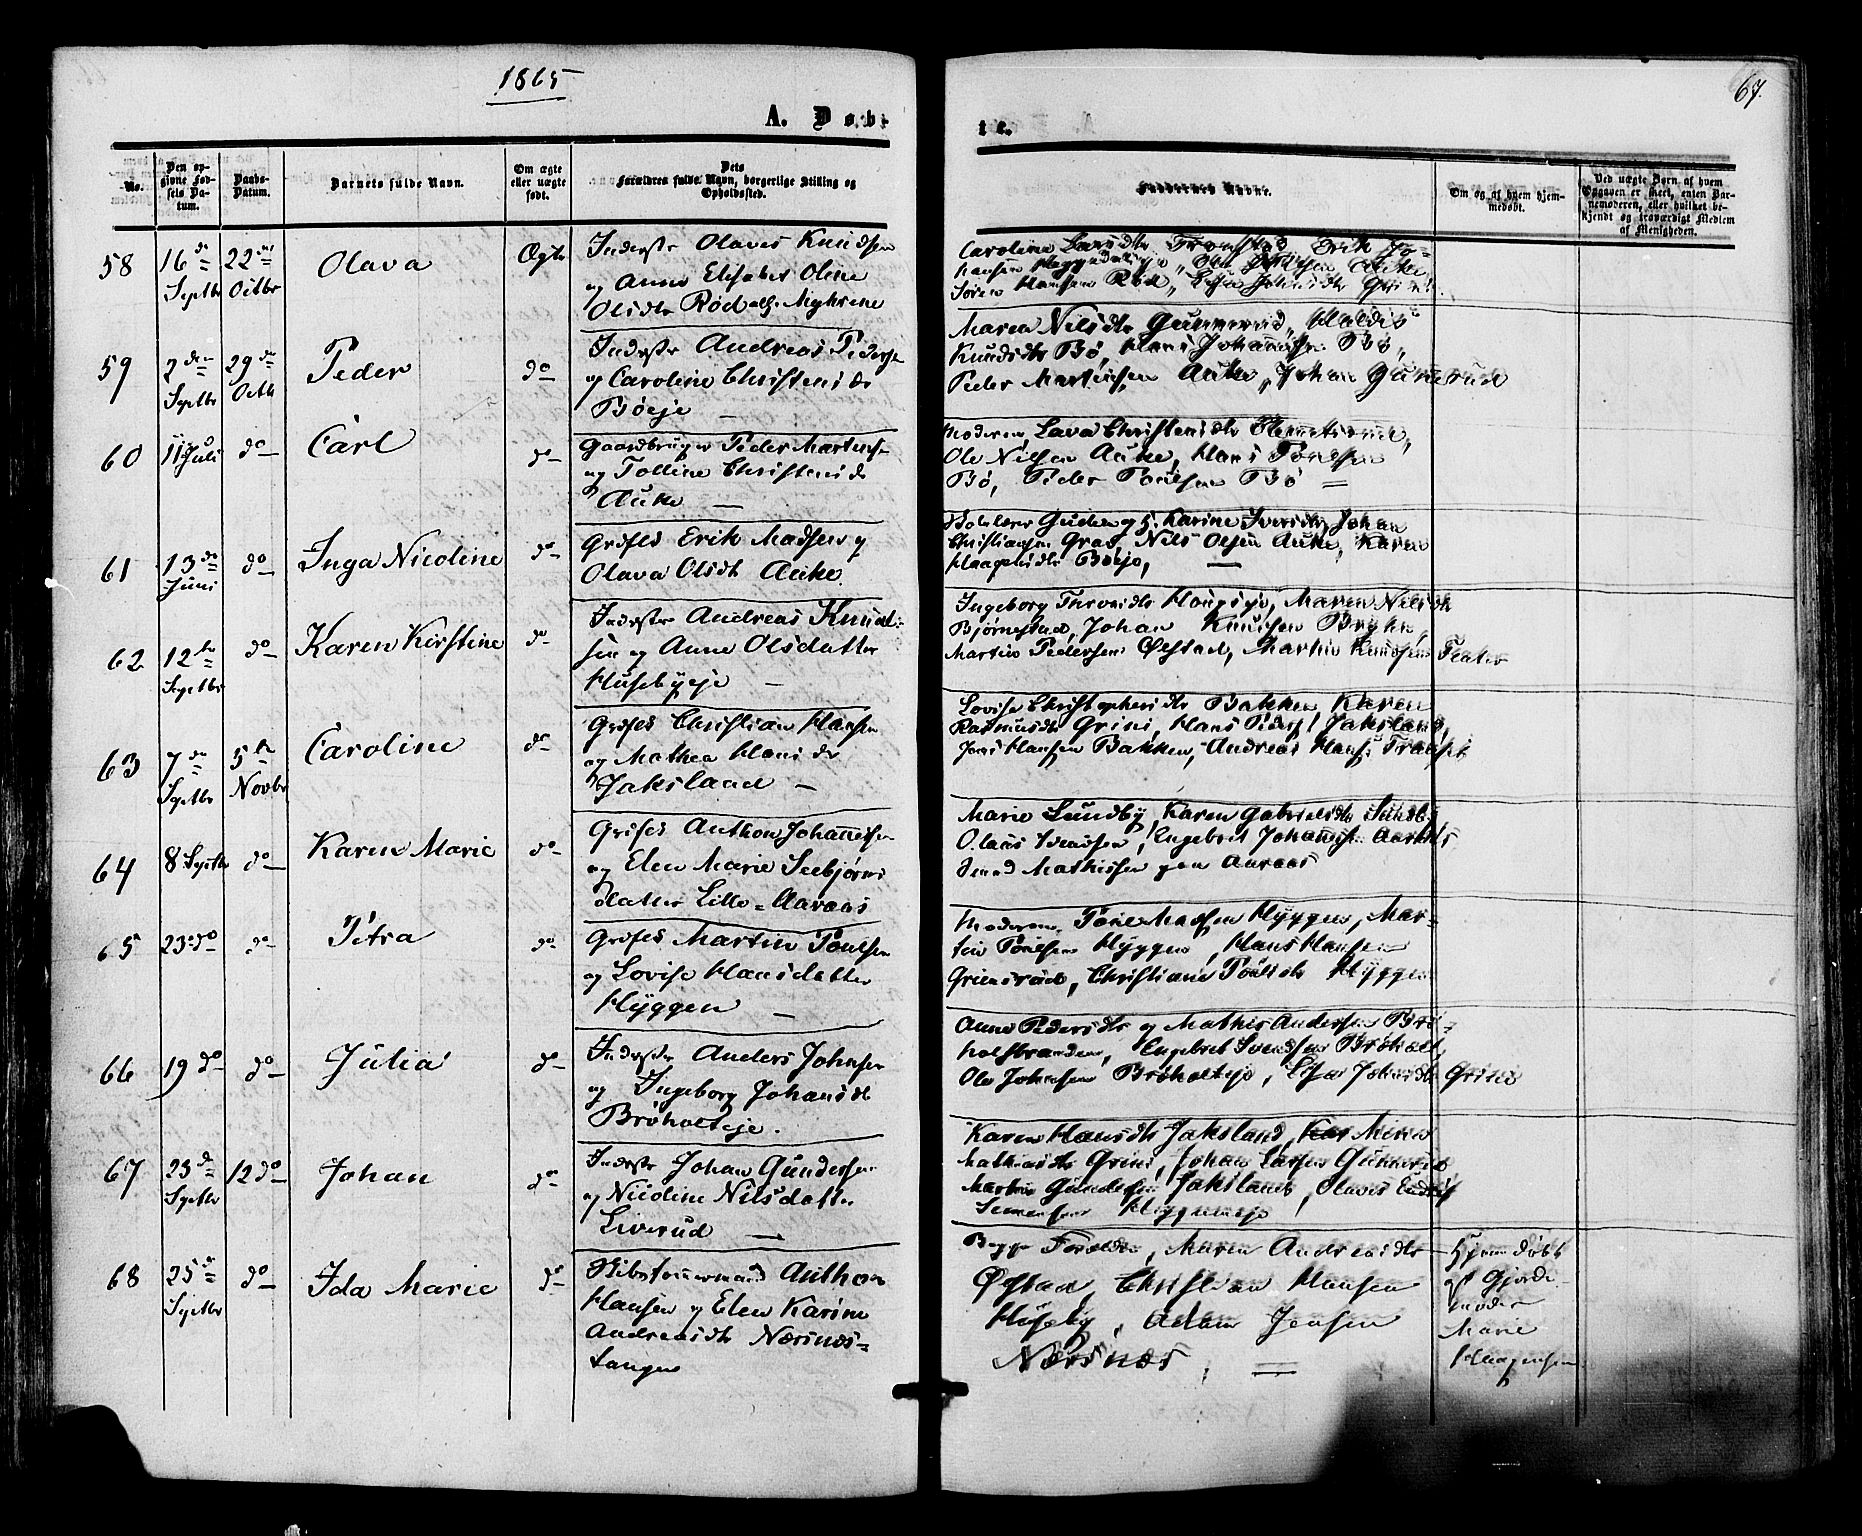 1865
67.
A. Døbte.
No.
Den opgivne Fødsels Datum.
Daabs-Datum.
Barnets fulde Navn.
Om ægte eller uægte født.
Dets Forældres fulde Navn, borgerlige Stilling og Opholdssted.
Faddernes Navne.
Om og af hvem hjemmedøbt.
Ved uægte Børn af hvem Opgaven er skeet, enten Barnemoderen, eller hvilket bekjendt og troværdigt Medlem af Menigheden.
58 16de Septbr 22de Octbr Olava Ægte
Inderste Olaves Knudsen
og Anne Elisabet Oline
Olsdtr Rød alf. Myhrene
Caroline Larsdtr Erik Jo-
hansen
Søren Hansen Rød, Johansdtr
59 2den Septbr 29de Octb Peder do
Inderste Andreas Peders
og Caroline Christensdr
Böeje
Maren Nilsdtr Gunnerud,
Knudsdtr Bö, Hans Johannesen Bö,
Peder Martinsen Auke, Johan Gunnerud
60 11 Juli do Carl do
Gaardbruger Peder Martins
og Tolline Christensdr
Auke
Moderen, Lava Christensdtr
Ole Nilsen Auke, Hans Poulsen
Bö, Peder Poulsen Bö
61 13de Juni do Inga Nicoline do
Grdfld Erik Madsen og
Olava Olsdt Auke.
Karine Iversdtr, Johan
Christiansen Grav, Nils Olsen Auke, Karen
Haagensdtr Böeje,
62 12te Septbr do Karen Kirstine do
Inderste Andreas Knud-
sen og Anne Olsdatter
Husebyeje
Ingeborg Maren Nilsdt
Bjørnestad, Johan Knudsen
Martin Pedersen Øfstad, Martin Knudsen
63 7de Septbr 5te Novbr Caroline do
Grdfld Christian Hansen
og Mathea Hansdr
Jaksland
Lovise Christophersdtr Bakken, Karen
Rasmusdtr Grini, Hans Peders Jaksland,
Jens Hansen Bakken, Andreas Hans.
64 8 Septbr do Karen Marie do
Grdfld Anthon Johannesen
og Elen Marie Seebjørns
datter Lille-Aaraas
Marie Lundby, Karen Gabrielsdtr Sundby
Olaus Engebret Johannesen Aaraas
Mathissen Aaraas
65 23 do do Petra do
Grdfld Martin Poulsen
og Lovise Hansdatter
Hyggen
Moderen, Poul Madsen Hyggen, Mar-
tin Poulsen Hyggen, Hans Hansen
Christiane Poulsdtr Hyggen
66 19 do do Julia do
Inderste Anders Johnsen
og Ingeborg Johansdt
Bröholteje.
Anne Pedersdtr og Mathis Andersen Brö-
holtbraaden, Engebret Svendsen Bröholt,
Ole Johnsen Bröholteje, Johansdtr Grini
67 23de Septbr 12 do Johan do
Inderste Johan Gundersen
og Nicoline Nilsdatter
Liverud
Karen Hansdtr Jaksland,
Mathisdtr Grini, Johan Larsen Gunnerud
Martin Gundersen Jaksland, Olaves
Hyggeneje
68 25de Septbr do Ida Marie do
Skibstømmermand Anthon
Hansen og Elen Karine
Andreasdtr Nærsnes-
tangen
Begge Forældre, Maren Andreasdtr
Øfstad, Christian Hansen
Huseby, Adam Jensen
Nærsnes,
Hjemmedøbt
af Gjorde-
moder
Marie
Haagensen